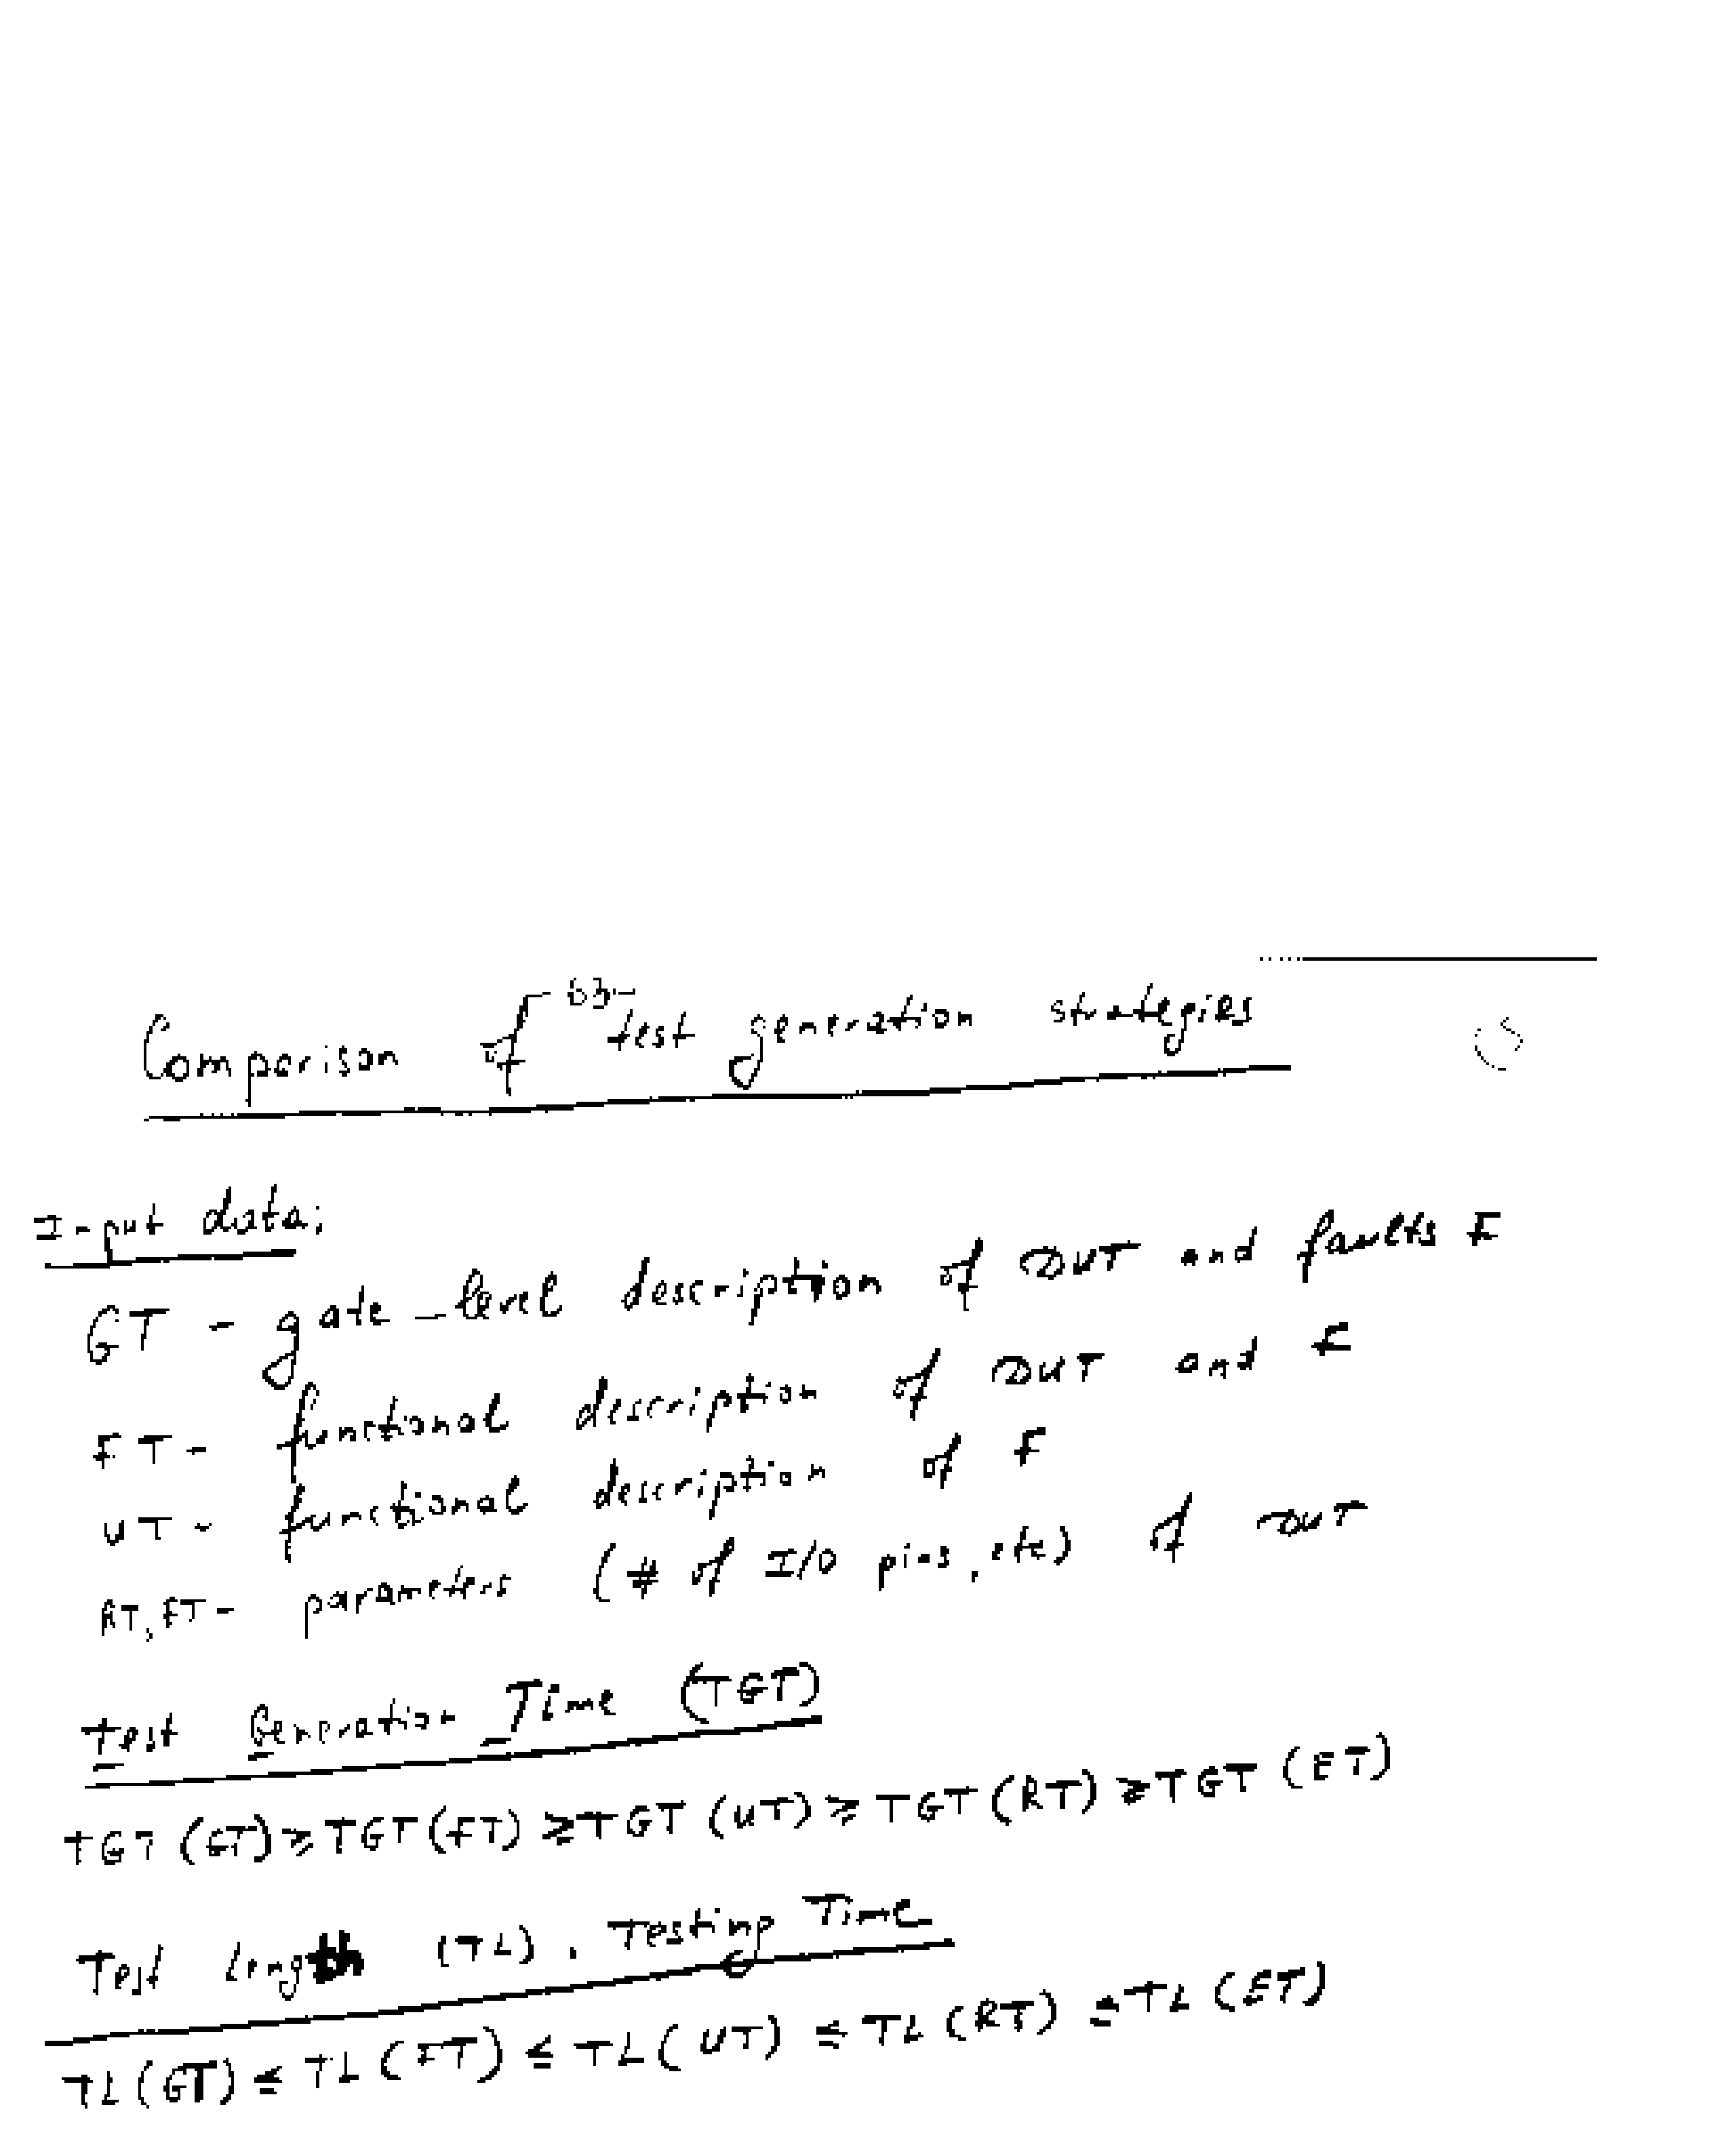 63-
Comparison of test generation strategies
Input data:
GT - gate-level description of DUT and faults F
FT - functional description of DUT and F
UT - functional description of F
RT, ET - parameters (# of I/O pins, etc) of DUT
Test Generation Time (TGT)
TGT (GT) ≥ TGT (FT) ≥ TGT (UT) ≥ TGT (RT) ≥ TGT (ET)
Test Length (TL), Testing Time
TL (GT) ≤ TL (FT) ≤ TL (UT) ≤ TL (RT) ≤ TL (ET)